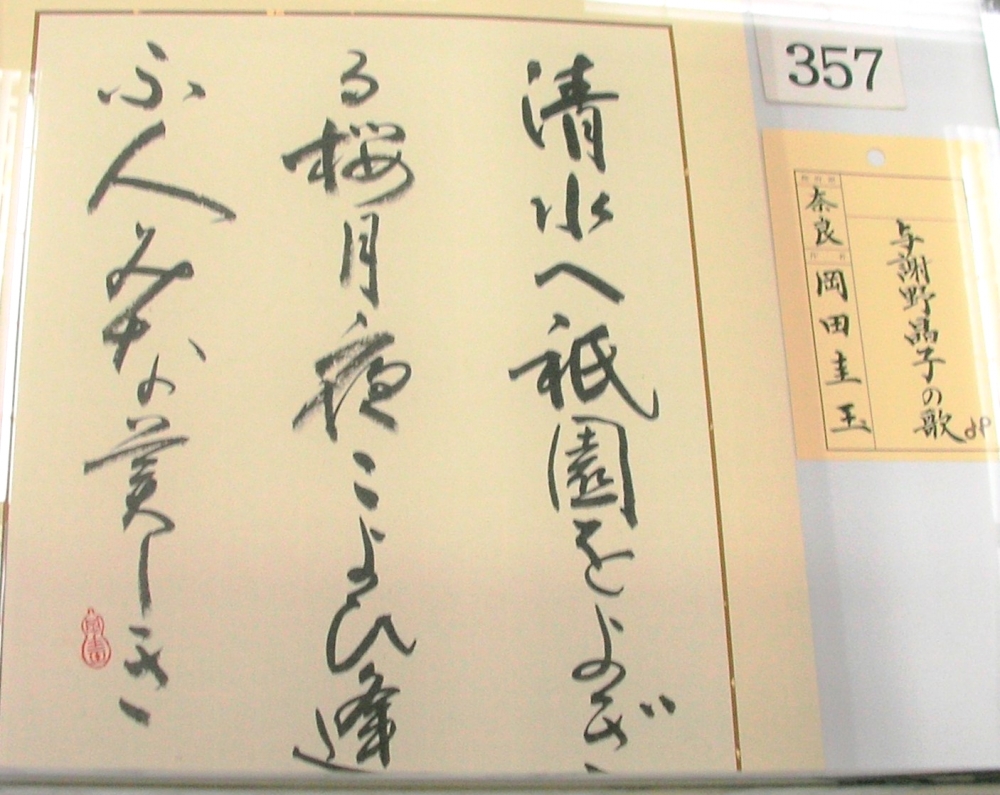 357
与謝野晶子の歌より
奈良
岡田圭玉
清水へ祇園をよぎ
る桜月夜こよひ逢
ふ人みな美しき